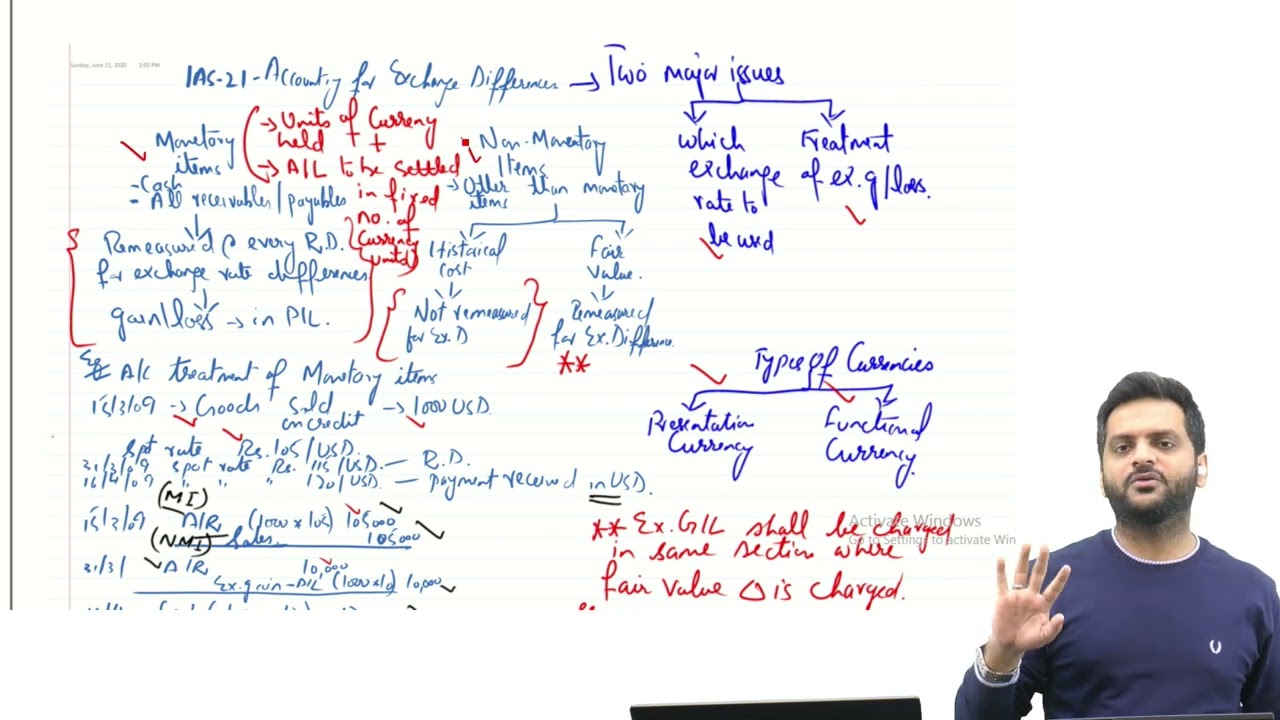 Sunday, June 21, 2020 2:05 PM
IAS-21 - Accounting for Exchange Differences → Two major issues
Monetary items
- Cash
- All receivables/payables
→ Units of Currency held +
→ A/L to be settled in fixed no. of Currency units
Remeasured @ every R.D. for exchange rate differences
gain/loss → in P/L.
Non-Monetary Items
→ Other than monetary items
Historical cost
Not remeasured for Ex.D
Fair Value.
Remeasured for Ex.Difference.
**
which exchange rate to be used
Treatment of ex.g/loss.
Types of Currencies
Presentation Currency
Functional Currency
Eg A/c treatment of Monetary items
15/3/09 → Goods sold on credit → 1000 USD.
spot rate Rs. 105/USD.
31/3/09 spot rate Rs. 115/USD. — R.D.
16/4/09 " " " 120/USD. — payment received in USD.
(MI)
15/3/09 A/R (1000 x 105) 105000
(NMI) Sales. 105000
31/3/ A/R 10,000
Ex.gain-P/L (1000x10) 10,000
** Ex.G/L shall be charged
in same section where
fair value Δ is charged.
Activate Windows
Go to Settings to activate Win